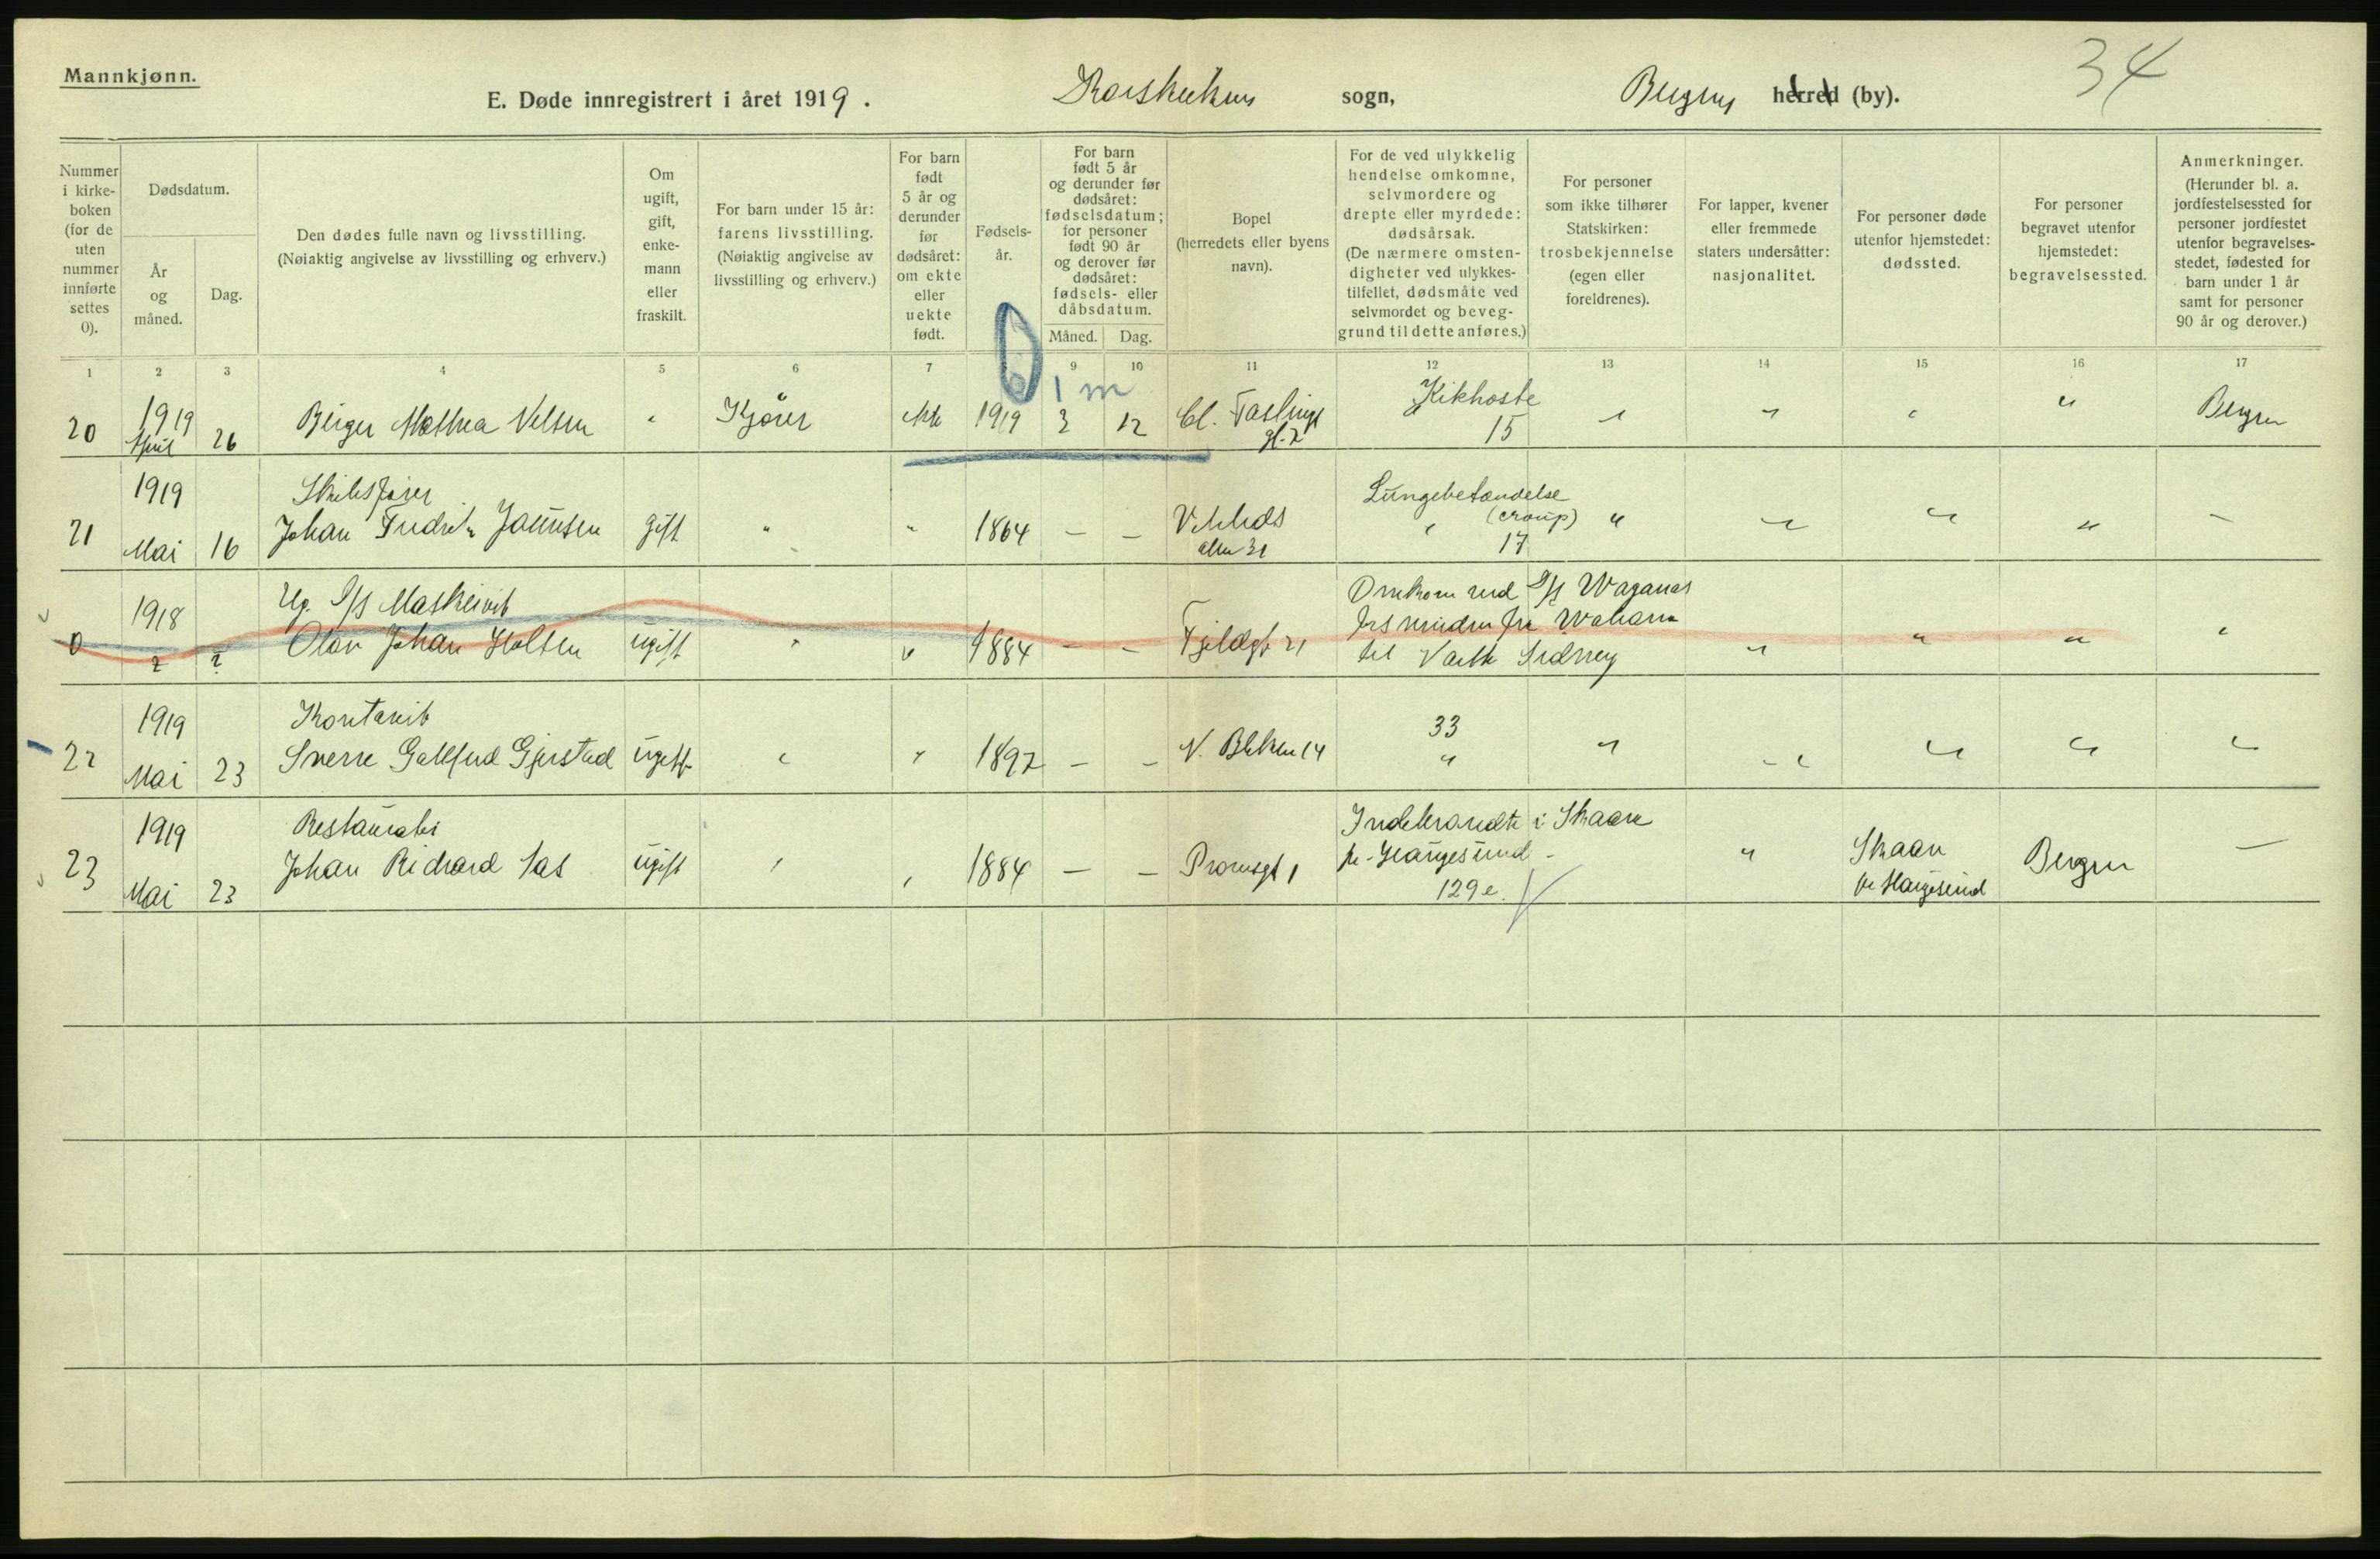 Mannkjønn.
E. Døde innregistrert i året 1919. Korskirken sogn, Bergens herred (by).
34
Nummer i kirkeboken (for de uten nummer innførte settes 0).
Dødsdatum.
År og måned.
Dag.
Den dødes fulle navn og livsstilling.
(Nøiaktig angivelse av livsstilling og erhverv.)
Om ugift, gift, enkemann eller fraskilt.
For barn under 15 år: farens livsstilling.
(Nøiaktig angivelse av livsstilling og erhverv.)
For barn født 5 år og derunder før dødsåret: om ekte eller uekte født.
Fødselsår.
For barn født 5 år og derunder før dødsåret: fødselsdatum; for personer født 90 år og derover før dødsåret: fødsels- eller dåbsdatum.
Måned.
Dag.
Bopel (herredets eller byens navn).
For de ved ulykkelig hendelse omkomne, selvmordere og drepte eller myrdede: dødsårsak.
(De nærmere omstendigheter ved ulykkestilfellet, dødsmåte ved selvmordet og beveggrund til dette anføres.)
For personer som ikke tilhører Statskirken: trosbekjennelse (egen eller foreldrenes).
For lapper, kvener eller fremmede staters undersåtter: nasjonalitet.
For personer døde utenfor hjemstedet: dødssted.
For personer begravet utenfor hjemstedet: begravelsessted.
Anmerkninger.
(Herunder bl. a. jordfestelsessted for personer jordfestet utenfor begravelsesstedet, fødested for barn under 1 år samt for personer 90 år og derover.)
1 2 3 4 5 6 7 9 10 11 12 13 14 15 16 17
0 1 m
20 1919 April 26 Birger Mathea Nelsen " Kjører ekte 1919 3 12 Kikhoste 15 " " " " Bergen
21 1919 Mai 16 Skibsfører
Johan Fredrik Jaunsen gift " " 1864 – – Lungebetændelse (croup) " 17 " " " " –
0 1918 ? ? Ug. S/S Maskinist
Olav Johan Holsen ugift " " 1884 – – Fjeldgt 21 Omkom med S/S Waganas
til Sidney " " " "
22 1919 Mai 23 Kontorist
Sverre Gjerstad ugift " " 1897 – – 33 " " " " " "
23 1919 Mai 23 Restauratør
Johan Richard Sas ugift " " 1884 – – Indebrændte i Skaare
pr. Haugesund – 129e. " Skaare pr Haugesund Bergen –